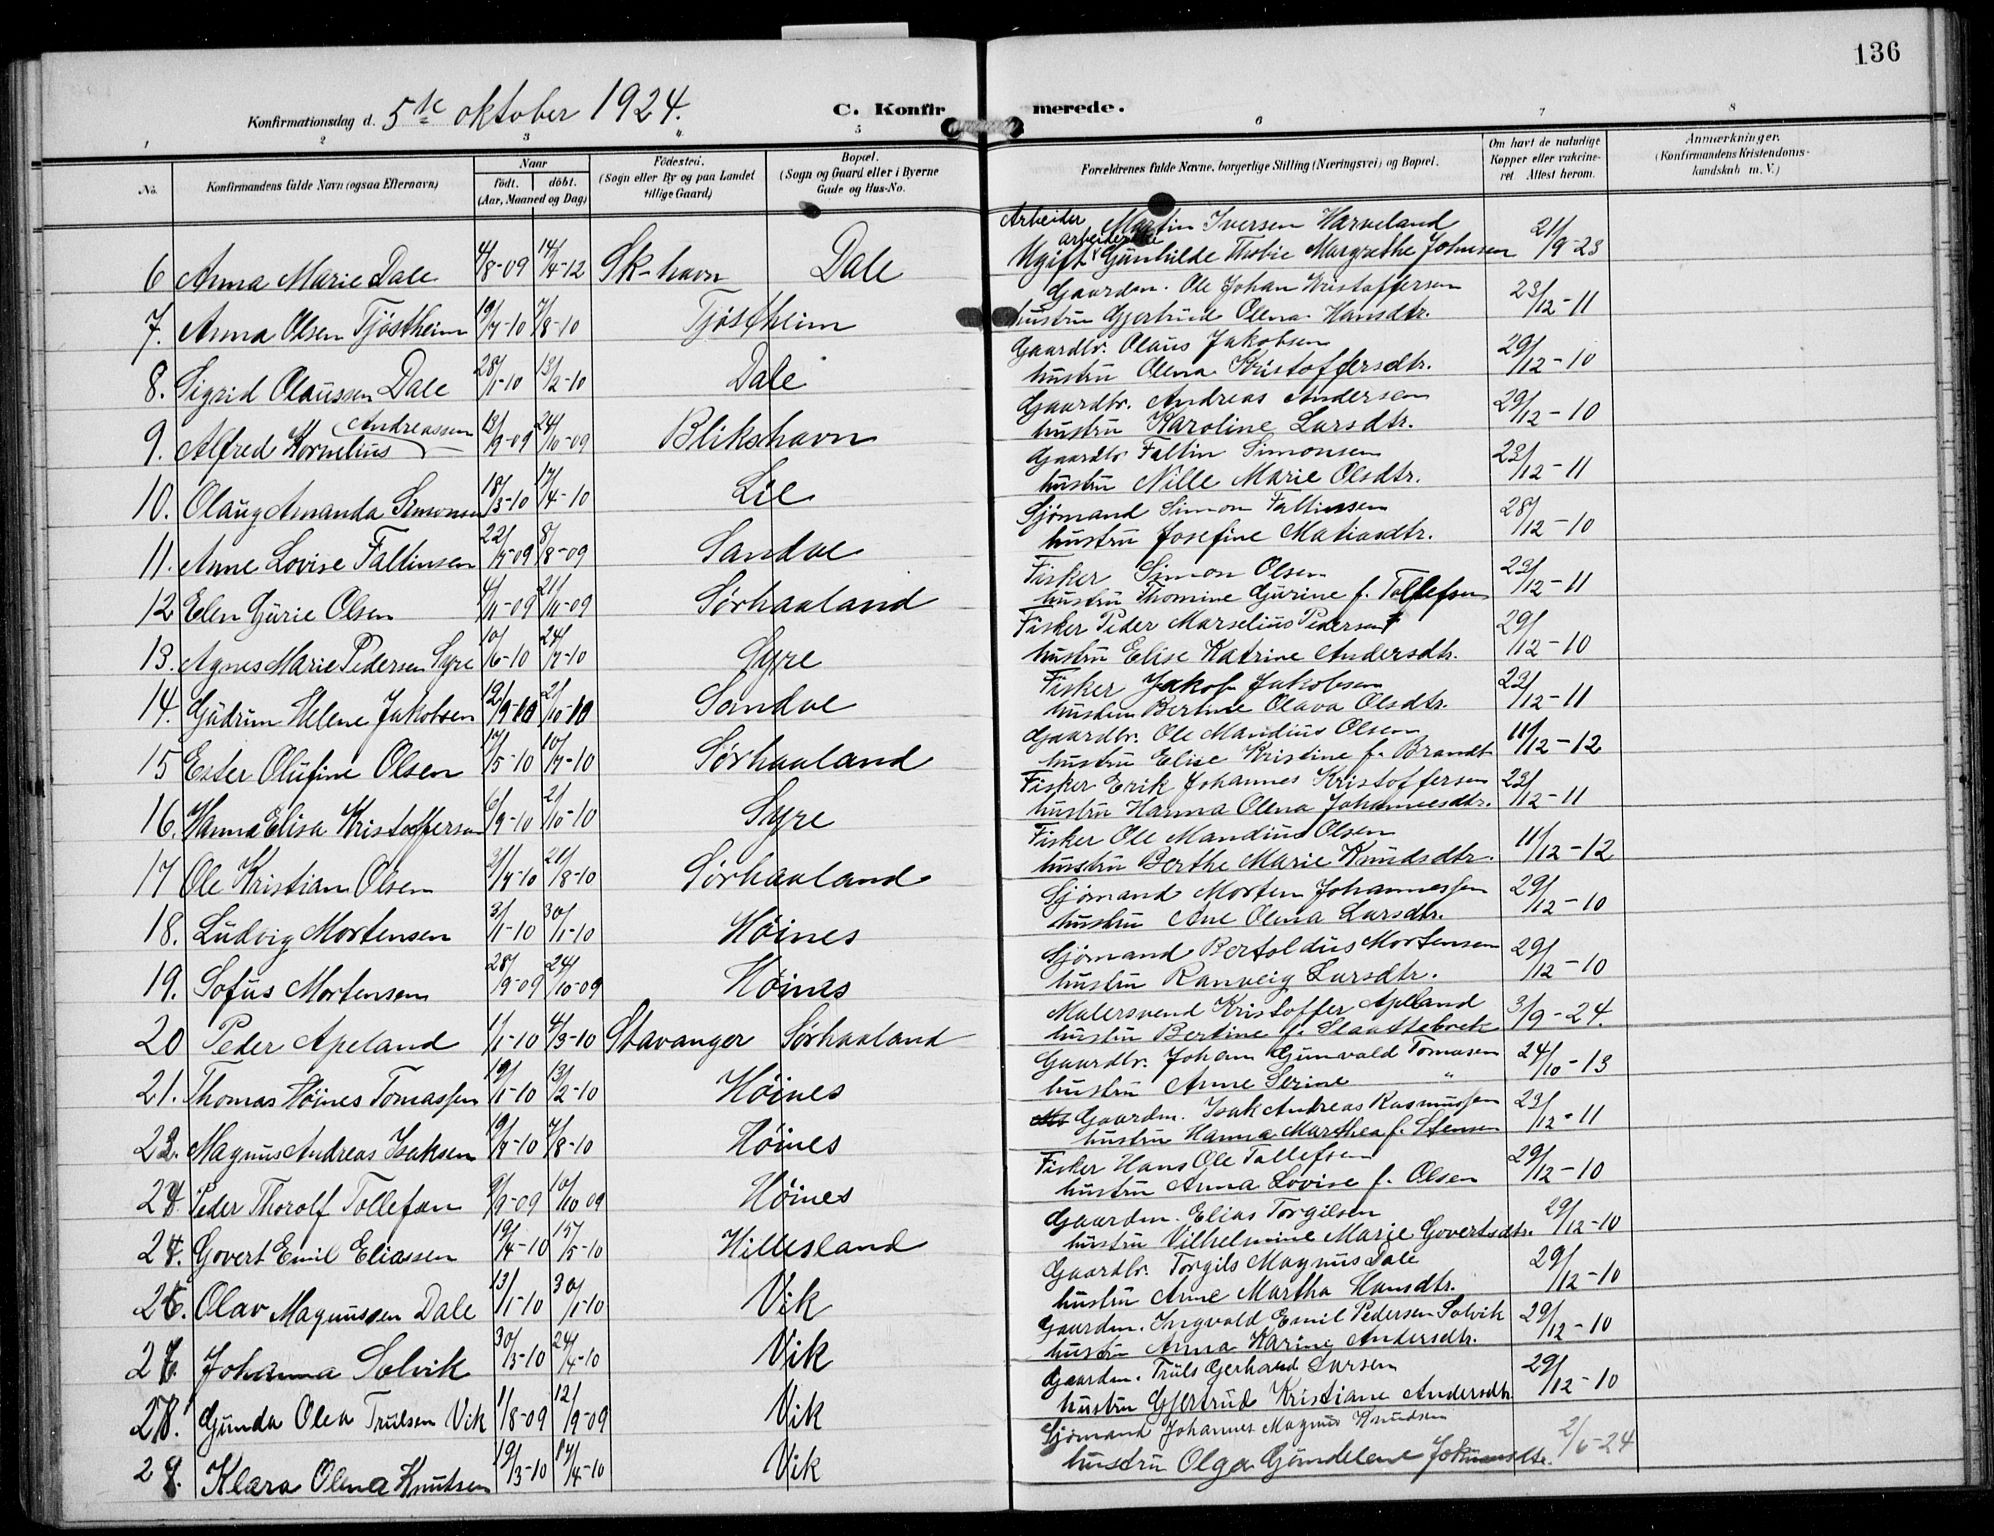 136
Konfirmationsdag d. 5te oktober 1924.
C. Konfirmerede.
1 2 3 4 5 6 7 8
No. Konfirmandens fulde Navn (ogsaa Efternavn) Naar født. døbt. (Aar, Maaned og Dag) Fødested. (Sogn eller By og paa Landet tillige Gaard) Bopæl. (Sogn og Gaard eller i Byerne Gade og Hus-No. Forældrenes fulde Navne, borgerlige Stilling (Næringsvei) og Bopæl. Om havt de naturlige Kopper eller vakcineret Attest herom. Anmærkninger. (Konfirmandens Kristendomskundskab m. V.)
6 Anna Marie Dale 4/8-09 14/4-12 Sk-havn Dale Arbeider Martin Iversen Harveland
Ugift arbeiderske Gunhilde Thobie Margrethe Johnsen 21/9-23
7. Anna Olsen Tjøstheim 19/7-10 7/8-10 Tjøstheim Gaardm. Ole Johan Kristoffersen
hustru Gjertrud Olena Hansdtr. 23/12-11
8. Sigrid Olaussen Dale 28/1-10 13/2-10 Dale Gaardbr. Olaus Jakobsen
hustru Olena Kristoffersdtr. 29/12-10
9. Alfred Kornelius Andreassen 13/9-09 24/10-09 Blikshavn Gaardbr. Andreas Andersen
hustru Karoline Larsdtr. 29/12-10
10. Olaug Amanda Simonsen 18/3-10 17/4-10 Lie Gaardbr Faltin Simonsen
hustru Nille Marie Olsdtr. 23/12-11
11. Anne Lovise Faltinsen 22/7-09 8/8-09 Sandve Sjømand Simon Faltinsen
hustru Josefine Matiasdtr. 28/12-10
12 Elen Gurie Olsen 4/11-09 21/11-09 Sørhaaland Fisker Simon Olsen
hustru Thomine Gurine f. Tollefsen 23/12-11
13. Agnes Marie Pedersen Syre 10/6-10 24/7-10 Syre Fisker Peder Marselius Pedersen
hustru Elise Katrine Andersdtr. 29/12-10
14. Gudrun Helene Jakobsen 12/9-10 2/10-10 Sandve Fisker Jakob Jakobsen
hustru Bertine Olava Olsdtr. 23/12-11
15 Ester Olufine Olsen 17/5-10 10/7-10 Sørhaaland Gaardbr. Ole Mandius Olsen
hustru Elise Kristine f. Brandt 11/12-12
16. Hanna Elisa Kristoffersen 6/9-10 2/10-10 Syre Fisker Erik Johannes Kristoffersen
hustru Hanna Olena Johannesdtr. 23/12-11
17 Ole Kristian Olsen 21/8-10 Sørhaaland Fisker Ole Mandius Olsen
hustru Berthe Marie Knudsdtr. 11/12-12
18. Ludvig Mortensen 3/1-10 30/1-10 Høines Sjømand Morten Johannessen
hustru Ane Olena Larsdtr. 29/12-10
19. Sofus Mortensen 28/9-09 24/10-09 Høines Sjømand Bertoldus Mortensen
hustru Ranveig Larsdtr. 29/12-10
20 Peder Apeland 1/1-10 4/3-10 Stavanger Sørhaaland Malersvend Kristoffer Apeland
hustru Bertine f. Slaattebrek 3/9-24.
21. Thomas Høines Tomassen 19/1-10 13/2-10 Høines Gaardbr. Johan Gunvald Tomasen
hustru Anne Serine " 24/10-13
22. Magnus Andreas Isaksen 19/7-10 7/8-10 Høines Gaardm. Isak Andreas Rasmussen
hustru Hanna Marthea f. Stensen 23/12-11
Peder Thorolf Tollefsen 9/9-09 10/10 09 Høines Fisker Hans Ole Tollefsen
hustru Anna Lovise f. Olsen 29/12-10
Govert Emil Eliassen 19/4-10 15/5-10 Hillesland Gaardm. Elias Torgilsen
hustru Vilhelmine Marie Govertsdtr. 29/12-10
Olav Magnussen Dale 13/1-10 30/1-10 Vik Gaardbr. Torgils Magnus Dale
hustru Anne Martha Hansdtr. 29/12-10
Johanna Solvik 30/3-10 24/4-10 Vik Gaardm. Ingvald Emil Pedersen Solvik
hustru Anna Karine Andersdtr. 29/12-10
Gunda Olea Trulsen Vik 1/8-09 12/9-09 Vik Gaardm. Truls Gerhard Larsen
hustru Gjertrud Kristiane Andersdtr 29/12-10
28. Klara Olena Knutsen 19/3-10 17/4-10 Vik Sjømand Johannes Magnus Knudsen
hustru Olga 2/6-24